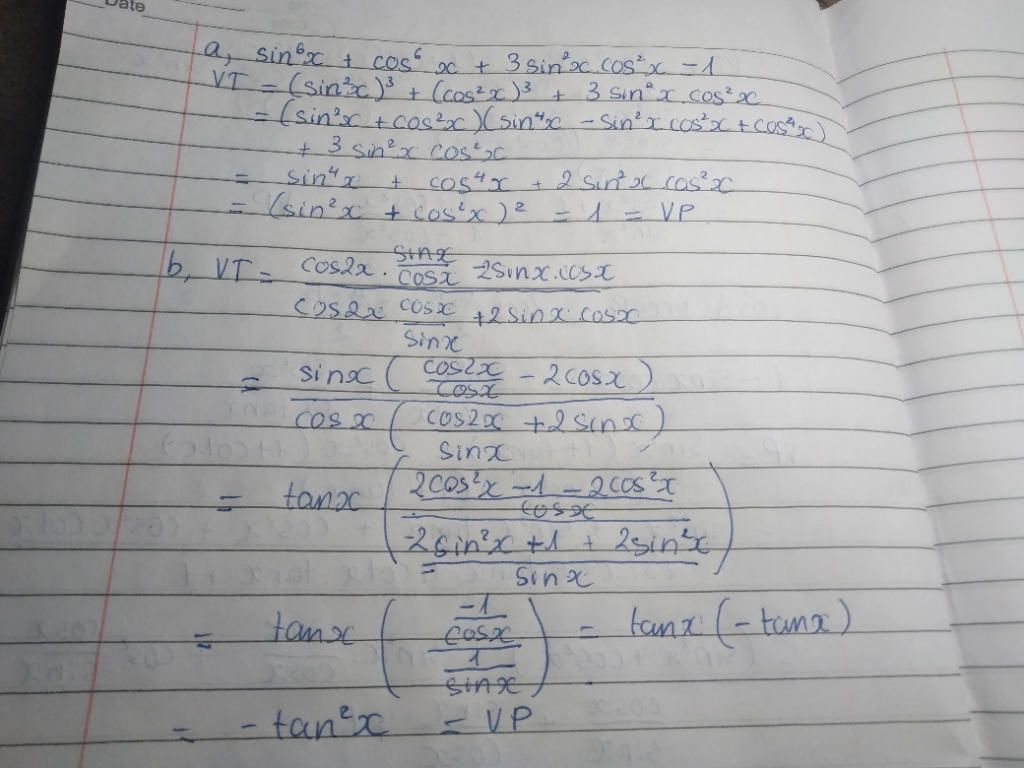 Date
a, sin⁶x + cos⁶x + 3sin²x cos²x - 1
VT = (sin²x)³ + (cos²x)³ + 3 sin²x.cos²x
= (sin²x + cos²x)(sin⁴x - sin²x cos²x + cos⁴x)
+ 3 sin²x cos²x
= sin⁴x + cos⁴x + 2 sin²x cos²x
= (sin²x + cos²x)² = 1 = VP
b, VT = (cos2x . sinx/cosx - 2sinx.cosx) / (cos2x cosx/sinx + 2sinx cosx)
= sinx (cos2x/cosx - 2cosx) / cosx (cos2x/sinx + 2 sinx)
= tanx ( ((2cos²x - 1 - 2cos²x)/cosx) / ((-2sin²x + 1 + 2sin²x)/sinx) )
= tanx ( (-1/cosx) / (1/sinx) ) = tanx (-tanx)
= - tan²x = VP